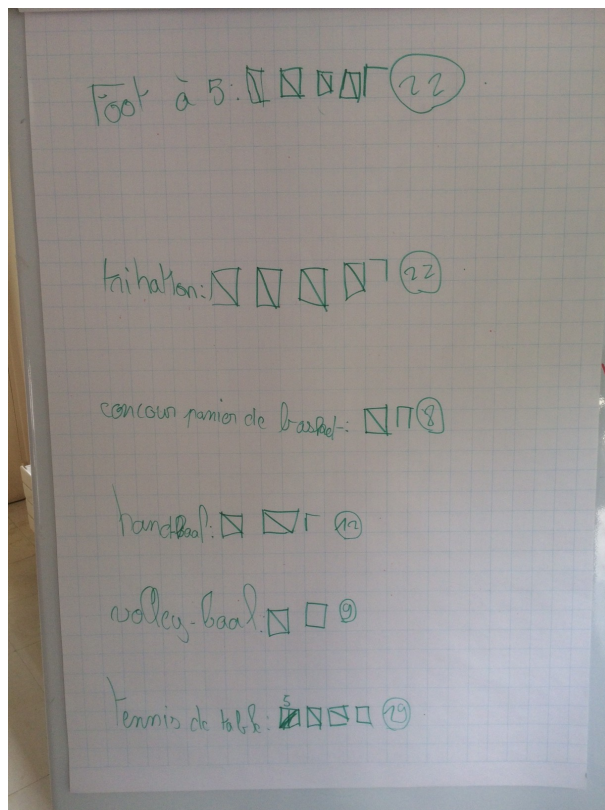 Foot à 5: 22
trihatlon: 22
concour panier de basket: 8
hand-baal: 12
volley-baal: 9
5
tennis de table: 19